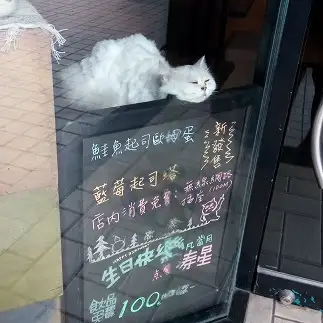 鮭魚起司歐姆蛋
新發售
藍莓起司塔
店內消費免費
無線網路
插座
生日快樂
凡當月
壽星
飲品
100